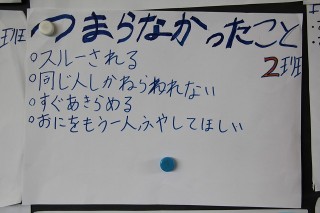 つまらなかったこと
2班
○スルーされる
○同じ人しかねらわれない
○すぐあきらめる
○おにをもう一人ふやしてほしい
班